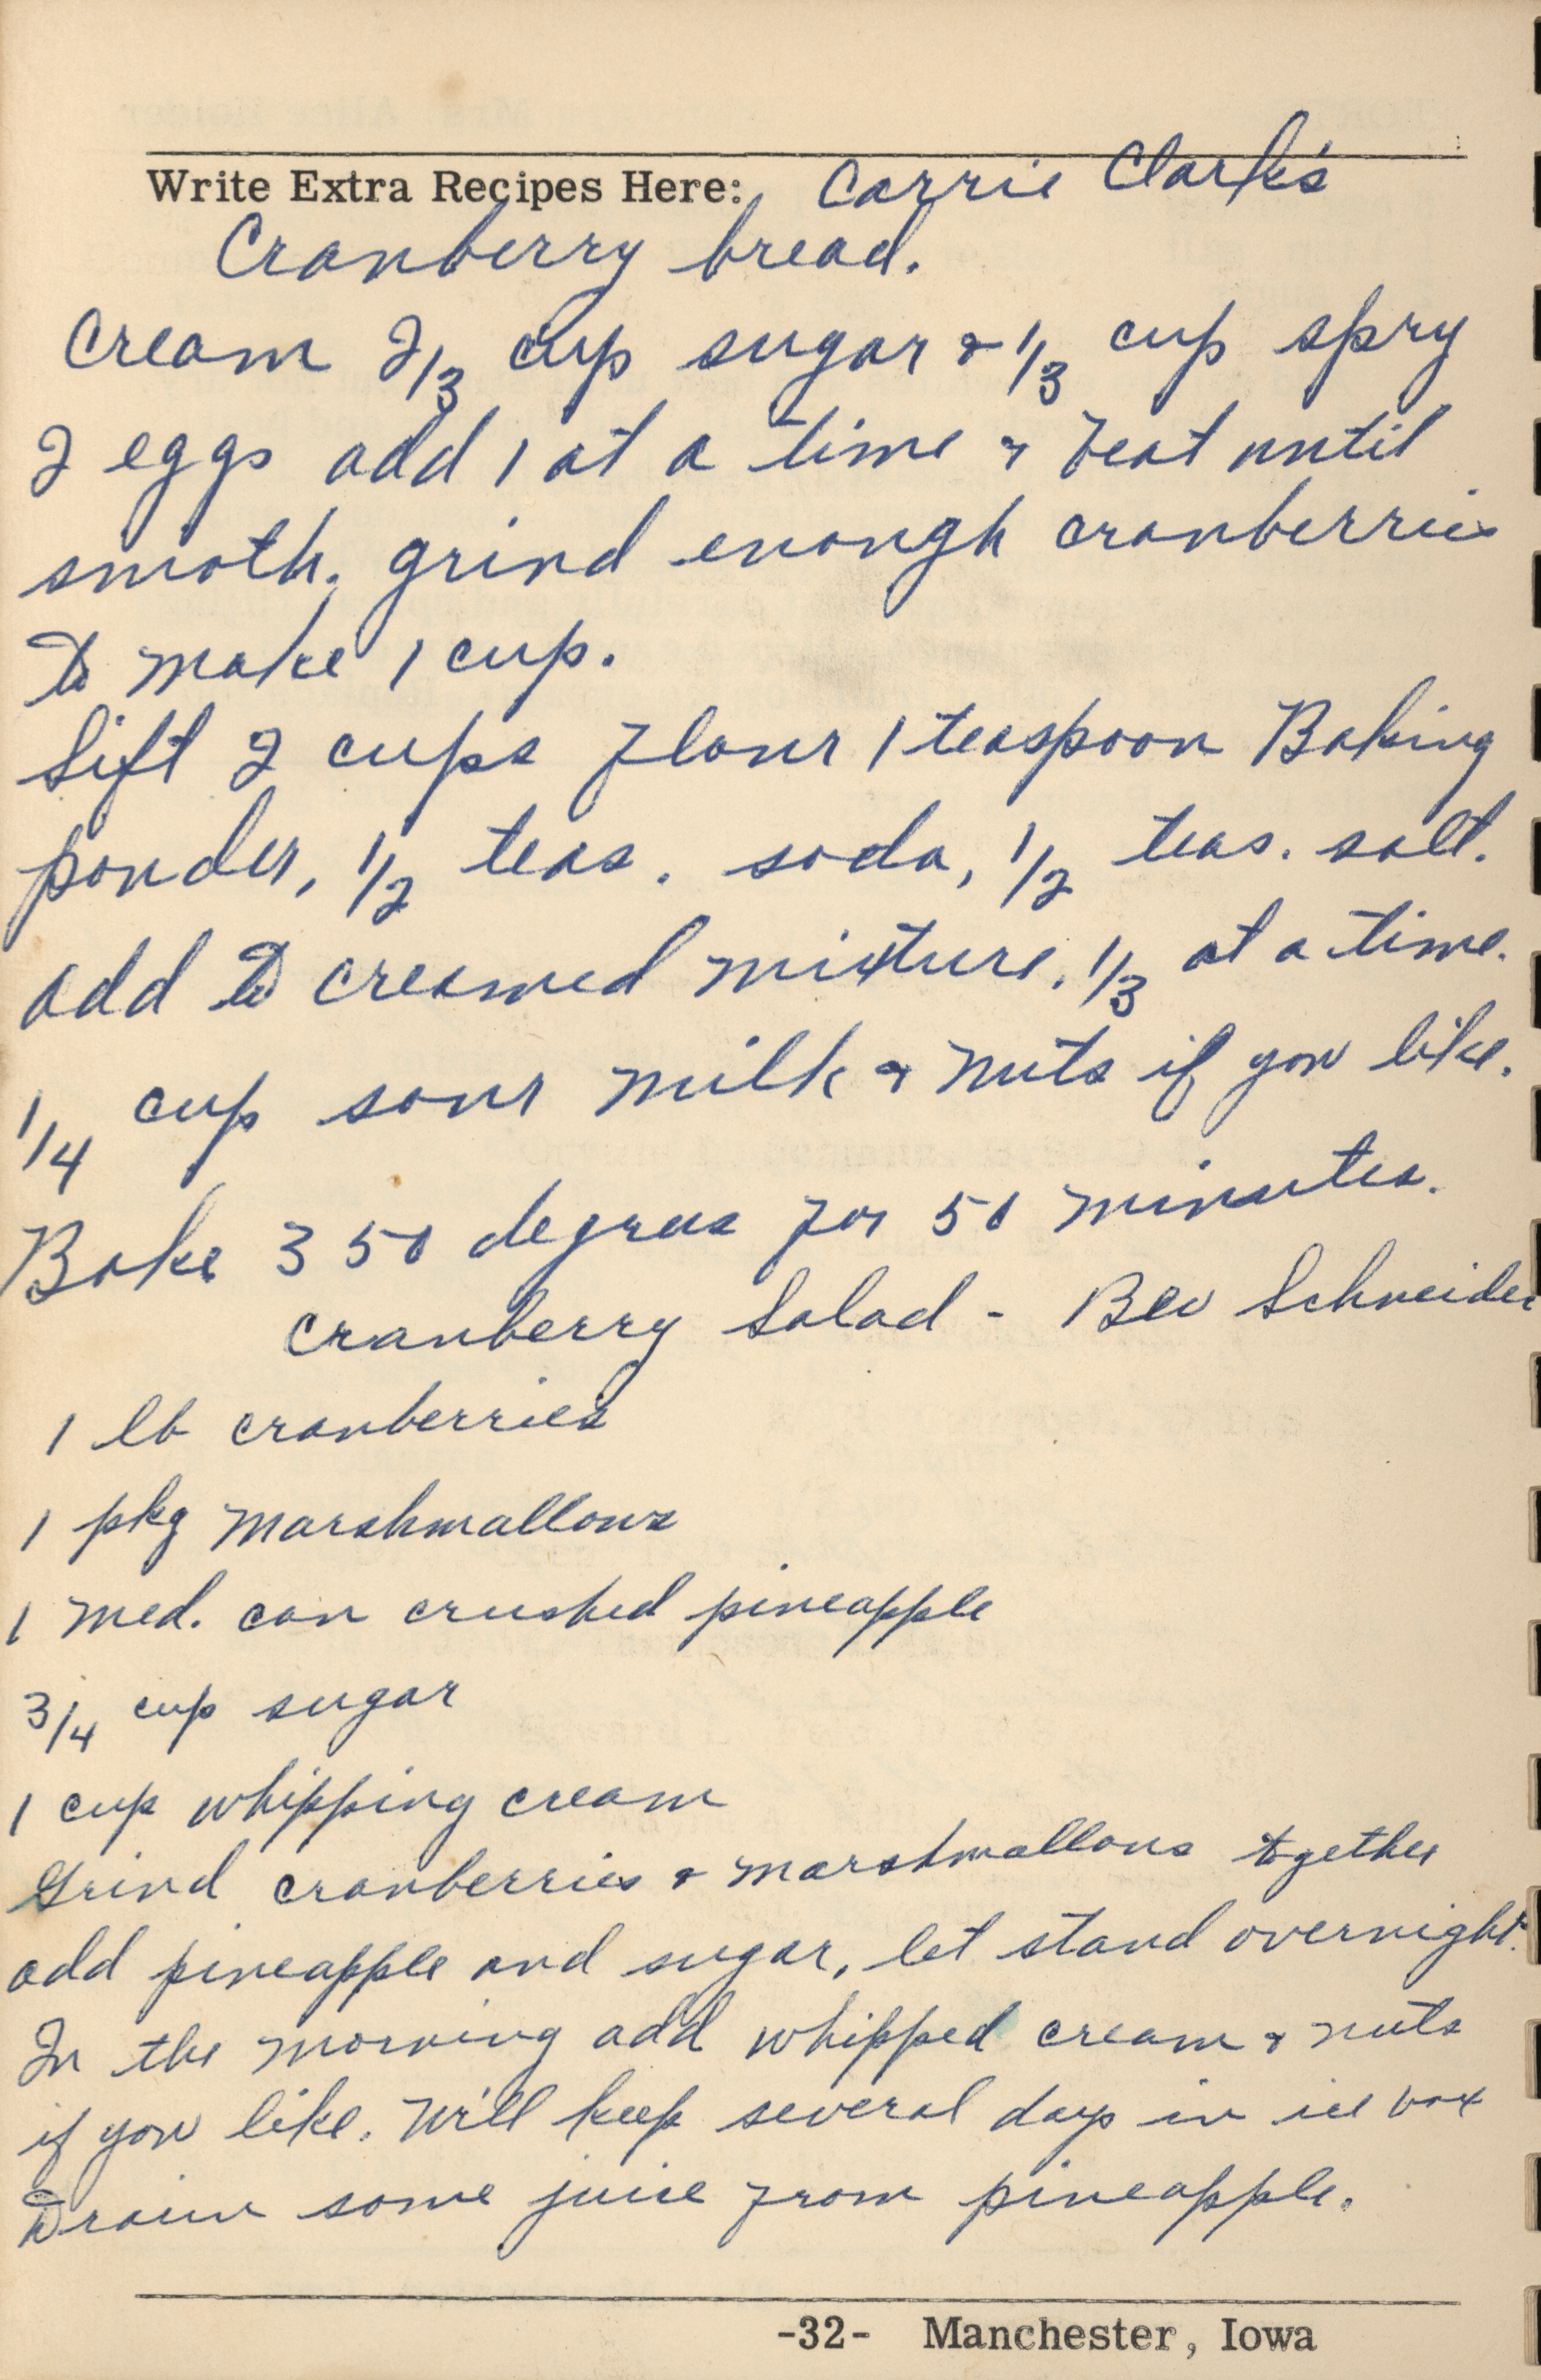 Write Extra Recipes Here: Carrie Clark's
Cranberry bread.
Cream 2/3 cup sugar & 1/3 cup spry
2 eggs add 1 at a time & beat until
smoth. grind enough cranberries
to make 1 cup.
Sift 2 cups flour 1 teaspoon Baking
powder, 1/2 teas. soda, 1/2 teas. salt.
add to creamed mixture. 1/3 at a time.
1/4 cup sour milk & nuts if you like.
Bake 350 degrees for 50 minutes.
Cranberry Salad - Bev Schneider
1 lb cranberries
1 pkg marshmallows
1 med. can crushed pineapple
3/4 cup sugar
1 cup whipping cream
Grind cranberries & marshmallows together
add pineapple and sugar, let stand overnight.
In the morning add whipped cream & nuts
if you like. Will keep several days in ice box
Drain some juice from pineapple.
-32- Manchester, Iowa